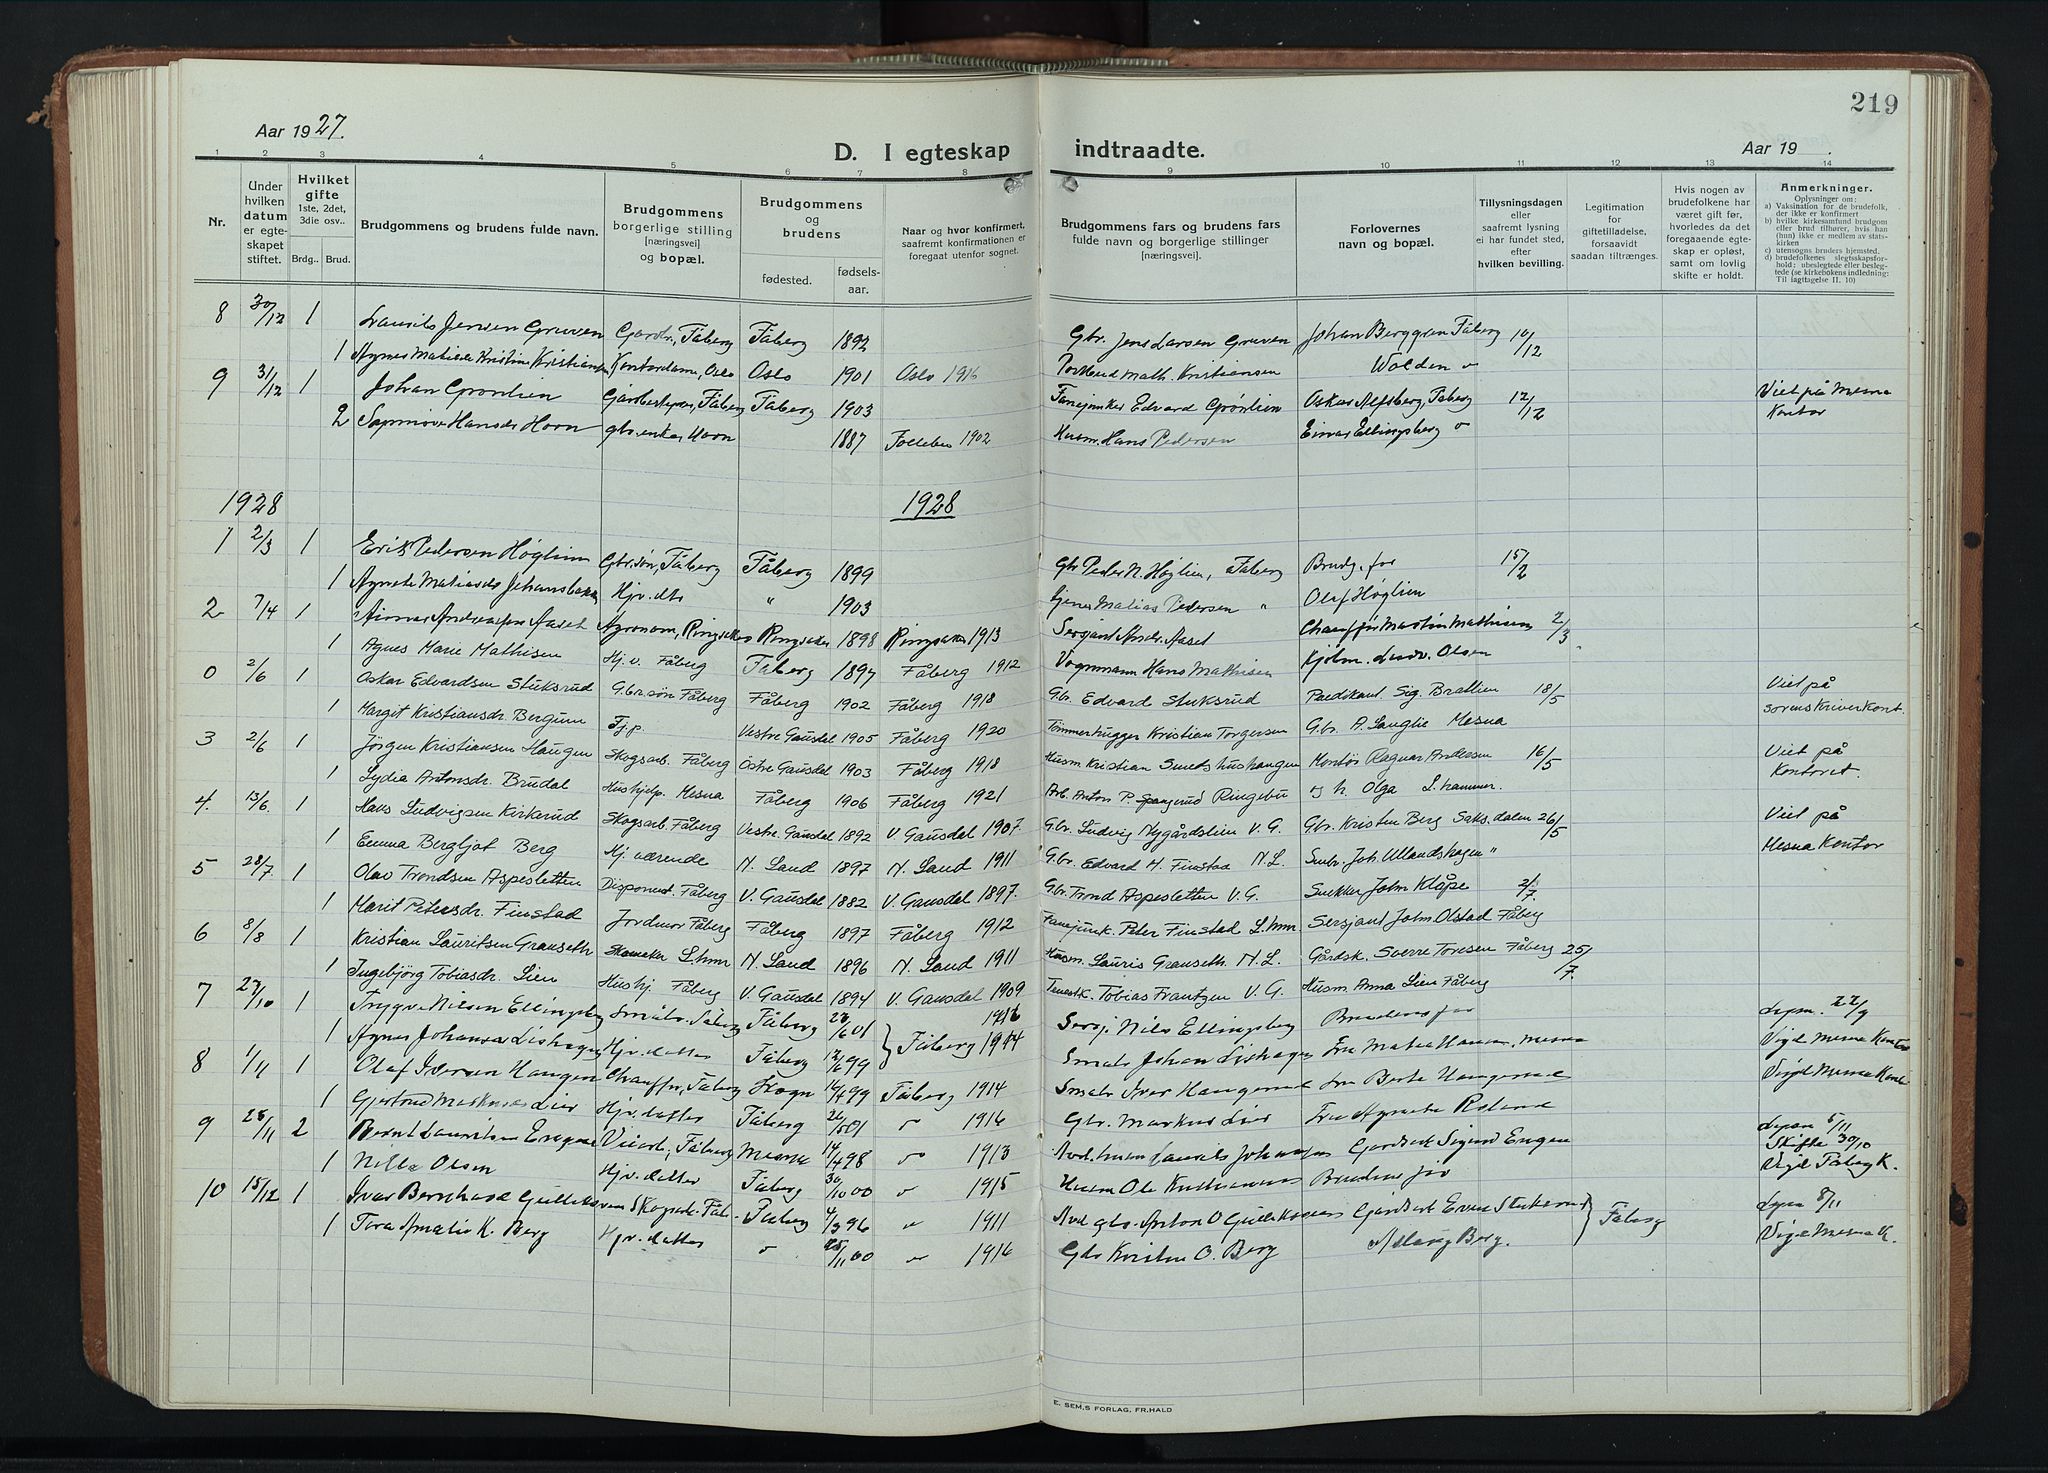 219
Aar 1927.
D. I egteskap indtraadte.
Aar 19
1 2 3 4 5 6 7 8 9 10 11 12 13 14
Nr.
Under hvilken datum er egteskapet stiftet.
Hvilket gifte 1ste, 2det, 3die osv..
Brdg.. Brud.
Brudgommens og brudens fulde navn.
Brudgommens borgerlige stilling [næringsvei] og bopæl.
Brudgommens og brudens
fødested. fødsels-aar.
Naar og hvor konfirmert, saafremt konfirmationen er foregaat utenfor sognet.
Brudgommens fars og brudens fars fulde navn og borgerlige stillinger [næringsvei].
Forlovernes navn og bopæl.
Tillysningsdagen eller saafremt lysning ei har fundet sted, efter hvilken bevilling.
Legitimation for giftetilladelse, forsaavidt saadan tiltrænges.
Hvis nogen av brudefolkene har været gift før, hvorledes da det foregaaende egteskap er opløst, samt om lovlig skifte er holdt.
Anmerkninger.
Oplysninger om:
a) Vaksination for de brudefolk, der ikke er konfirmert
b) hvilke kirkesamfund brudgom eller brud tilhører, hvis han (hun) ikke er medlem av statskirken
c) utensogns bruders hjemsted.
d) brudefolkenes slegtsskapsforhold: ubeslegtede eller beslegtede (se kirkebokens indledning: Til iagttagelse II. 10)
8 30/12 1 Lauritz Jensen Gruven Gardbr., Fåberg Fåberg 1892 Gbr. Jens Larsen Gruven Johan Berggren Fåberg 10/12
1 Agnes Matilde Kristine Kristiansen Kontordame, Oslo Oslo 1901 Oslo 1916 Math. Kristiansen Wolden
9 31/12 1 Johan Grønlien Fåberg Fåberg 1903 Fanejunker Edvard Grønlien Oskar Alfsberg, Fåberg 12/12 Viet på Mesna
2 Hansdr Horn gbr.enke, Horn 1887 Follebu 1902 Husm. Hans Pedersen Einar Ellingsberg Kontor
1928 1928
1 2/3 1 Erik Pedersen Høglien Gbr.søn, Fåberg Fåberg 1899 Gbr Peder N. Høglien, Fåberg Brudg. far 15/2
1 Agnete Matiasdr Johansbakken Hjv. dtr " 1903 Matias Pedersen " Olaf Høglien
2 7/4 1 Andreassen Aaset Agronom, Ringsaker Ringsaker 1898 Ringsaker 1913 Sergiant Andr. Aaset Chauffør Martin Mathisen 2/3
1 Agnes Marie Mathisen Hj. v. Fåberg Fåberg 1897 Fåberg 1912 Vognmann Hans Mathisen Kjølm. Ludv. Olsen
0 2/6 1 Oskar Edvardsen Stuksrud G.br.søn Fåberg Fåberg 1902 Fåberg 1918 Gbr. Edvard Stuksrud Predikant Sig. Brattlien 18/5 Viet på
1 Margit Kristiansdr. Bergum Tj.p. Vestre Gausdal 1905 Fåberg 1920 Tømmerhugger Kristian Torgersen G.br. A. Langlie Mesna sorenskriverkont.
3 2/6 1 Jörgen Kristiansen Haugen Skogsarb. Fåberg Østre Gausdal 1903 Fåberg 1918 Husm Kristian Smedshushaugen Montör Ragnar Andersen 16/5 Viet på
1 Lydia Antonsdr. Brudal Hushjelp Mesna Fåberg 1906 Fåberg 1921 Arb. Anton P. Spangrud Ringebu og h. Olga L.hammer. Kontoret.
4. 13/6 1 Hans Ludvigsen Kirkerud Skogsarb. Fåberg Vestre Gausdal 1892 V Gausdal 1907. G.br. Ludvig Nygårdslien V. G. Gbr. Kristen Berg Saksdalen 26/5 Viet på
1 Emma Bergljot Berg Hj. værende N. Land 1897 N. Land 1911 G.br. Edvard H. Finstad N.L. Smbr. Joh. Ulandshagen " Mesna Kontor
5 28/7 1 Olav Trondsen Aspesletten Disponent Fåberg V. Gausdal 1882 V. Gausdal 1897. Gbr. Trond Aspesletten V. G. Snekker John Klåpe 2/7.
1 Marit Petersdr. Finstad Jordmor Fåberg Fåberg 1897 Fåberg 1912 Fanejunk. Peter Finstad L.hmr Sersjant John Olstad Fåberg
6 8/8 1 Kristian Lauritsen Granseth Skomaker L.hmr N. Land 1896 N. Land 1911 Husm. Lauris Granseth N. L. Gårdsk. Sverre Toresen Fåberg 25/7.
1 Ingebjörg Tobiasdr. Lien Hushj. Fåberg V. Gausdal 1894 V. Gausdal 1909 Tobias Frantzen V. G. Husm. Anna Lien Fåberg
7 27/10 1 Trygve Nilsen Ellingsberg Småbr. Fåberg Fåberg 23/6 01 1916 Sersj. Nils Ellingsberg Brudens far Lysn. 22/9
1 Agnes Johansdr Lishagen Hjv. datter Fåberg 12/6 99 Fåberg 1914 Småbr Johan Lishagen Mesna Vigd Mesna Kontor
8 1/11 1 Olaf Iversen Haugen Chauffør, Fåberg Skogn 16/4 99 Fåberg 1914 Småbr Iver Haugerud Fru Berte Haugerud Vigd Mesna Kont.
1 Gjertrud Markusdr Lier Hjv. datter Fåberg 26/5 01 " 1916 Gbr. Markus Lier Fru Agnete
9 25/11 2 Bernt Lauritsen Engen Fåberg Mesna 14/4 98 " 1913 Laurits Johansen Gardbr Sigurd Engen Lysn 5/11 Skifte 30/10
1 Nilla Olsen Hjv. datter Fåberg 30/10 00 " 1915 Husm Ole Brudens far Vigd Fåberg K.
10 15/12 1 Ivar Bernhard Gulliksen Skogsarb. Fåb. Fåberg 4/3 96 " 1911 Anton O Gulliksen Gardbr Even Stuksrud Fåberg Lysn 8/11
1 Tora Amalie K. Berg Hjv. datter " 25/11 00 " 1916 Gbr Kristen O. Berg Aslaug Berg. Vigd Mesna K.
E. SEM,S FORLAG, FR.HALD